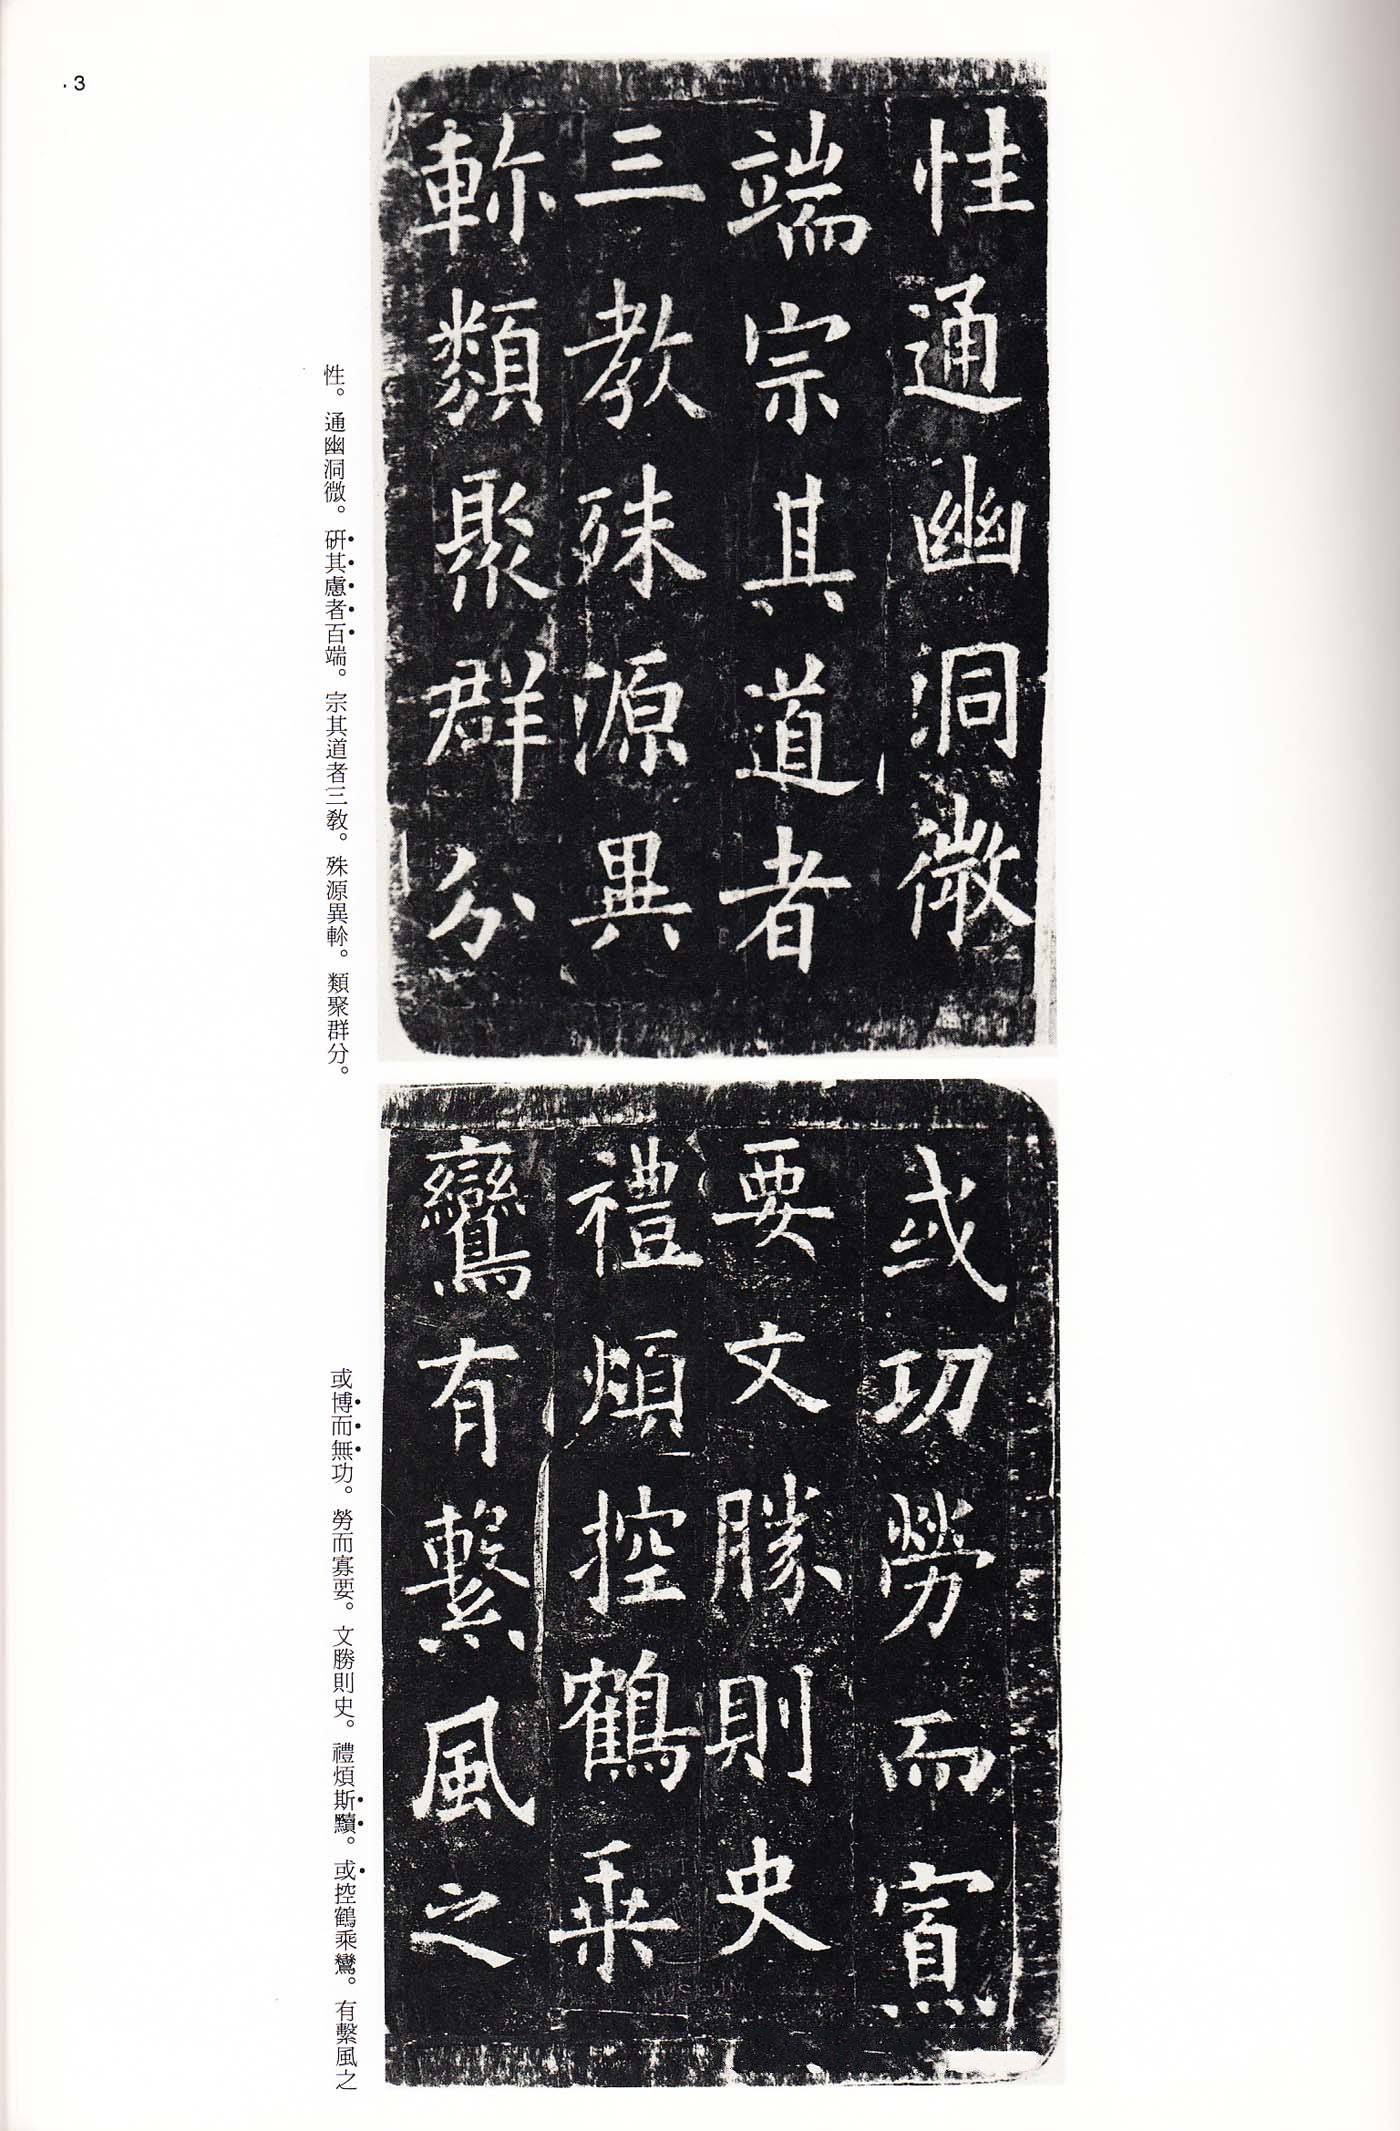 3
性通幽洞微
端宗其道者
三教殊源異
軫類聚群分
性。通幽洞微。硏其慮者百端。宗其道者三敎。殊源異軫。類聚群分。
或功勞而寡
要文勝則史
禮煩控鶴乘
鸞有繫風之
或博而無功。勞而寡要。文勝則史。禮煩斯黷。或控鶴乘鸞。有繫風之